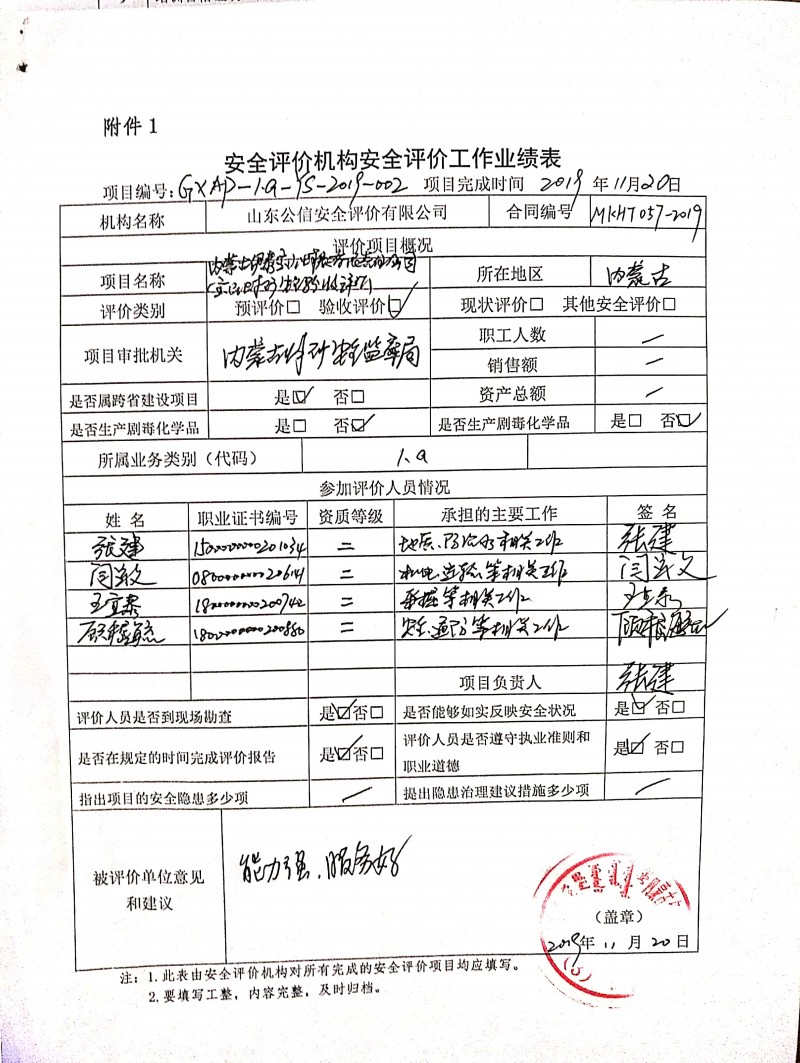 附件1
安全评价机构安全评价工作业绩表
项目编号：GXAP-1.a-YS-2019-002 项目完成时间 2019 年 11月20日
机构名称 山东公信安全评价有限公司 合同编号 MKHT057-2019
评价项目概况
项目名称 所在地区 内蒙古
评价类别 预评价□ 验收评价☑ 现状评价□ 其他安全评价□
项目审批机关 内蒙古 监察局 职工人数 —
销售额 —
是否属跨省建设项目 是☑ 否□ 资产总额 —
是否生产剧毒化学品 是□ 否☑ 是否生产剧毒化学品 是□ 否☑
所属业务类别（代码） 1.a
参加评价人员情况
姓名 职业证书编号 资质等级 承担的主要工作 签名
张建 二 地质、防治水相关工作 张建
闫 文 二 等相关工作 闫 文
王宜泰 二 采掘等相关工作
二 安全、通防等相关工作
项目负责人 张建
评价人员是否到现场勘查 是☑否□ 是否能够如实反映安全状况 是☑否□
是否在规定的时间完成评价报告 是☑否□ 评价人员是否遵守执业准则和 是☑否□
职业道德
指出项目的安全隐患多少项 — 提出隐患治理建议措施多少项 —
被评价单位意见 能力强、服务好
和建议
（盖章）
2019年 11 月 20 日
注：1.此表由安全评价机构对所有完成的安全评价项目均应填写。
2.要填写工整，内容完整，及时归档。